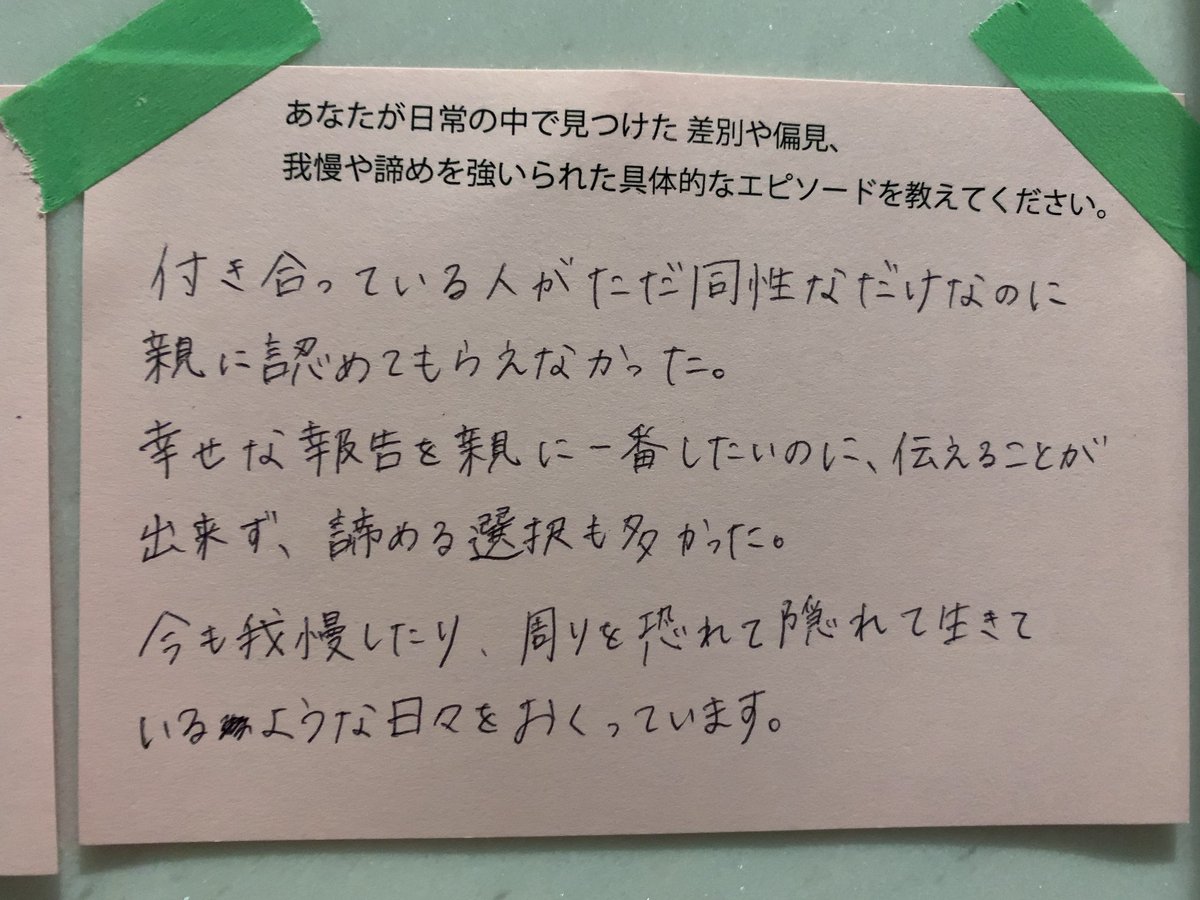 あなたが日常の中で見つけた 差別や偏見、
我慢や諦めを強いられた具体的なエピソードを教えてください。
付き合っている人がただ同性なだけなのに
親に認めてもらえなかった。
幸せな報告を親に一番したいのに、伝えることが
出来ず、諦める選択も多かった。
今も我慢したり、周りを恐れて隠れて生きて
いるような日々をおくっています。